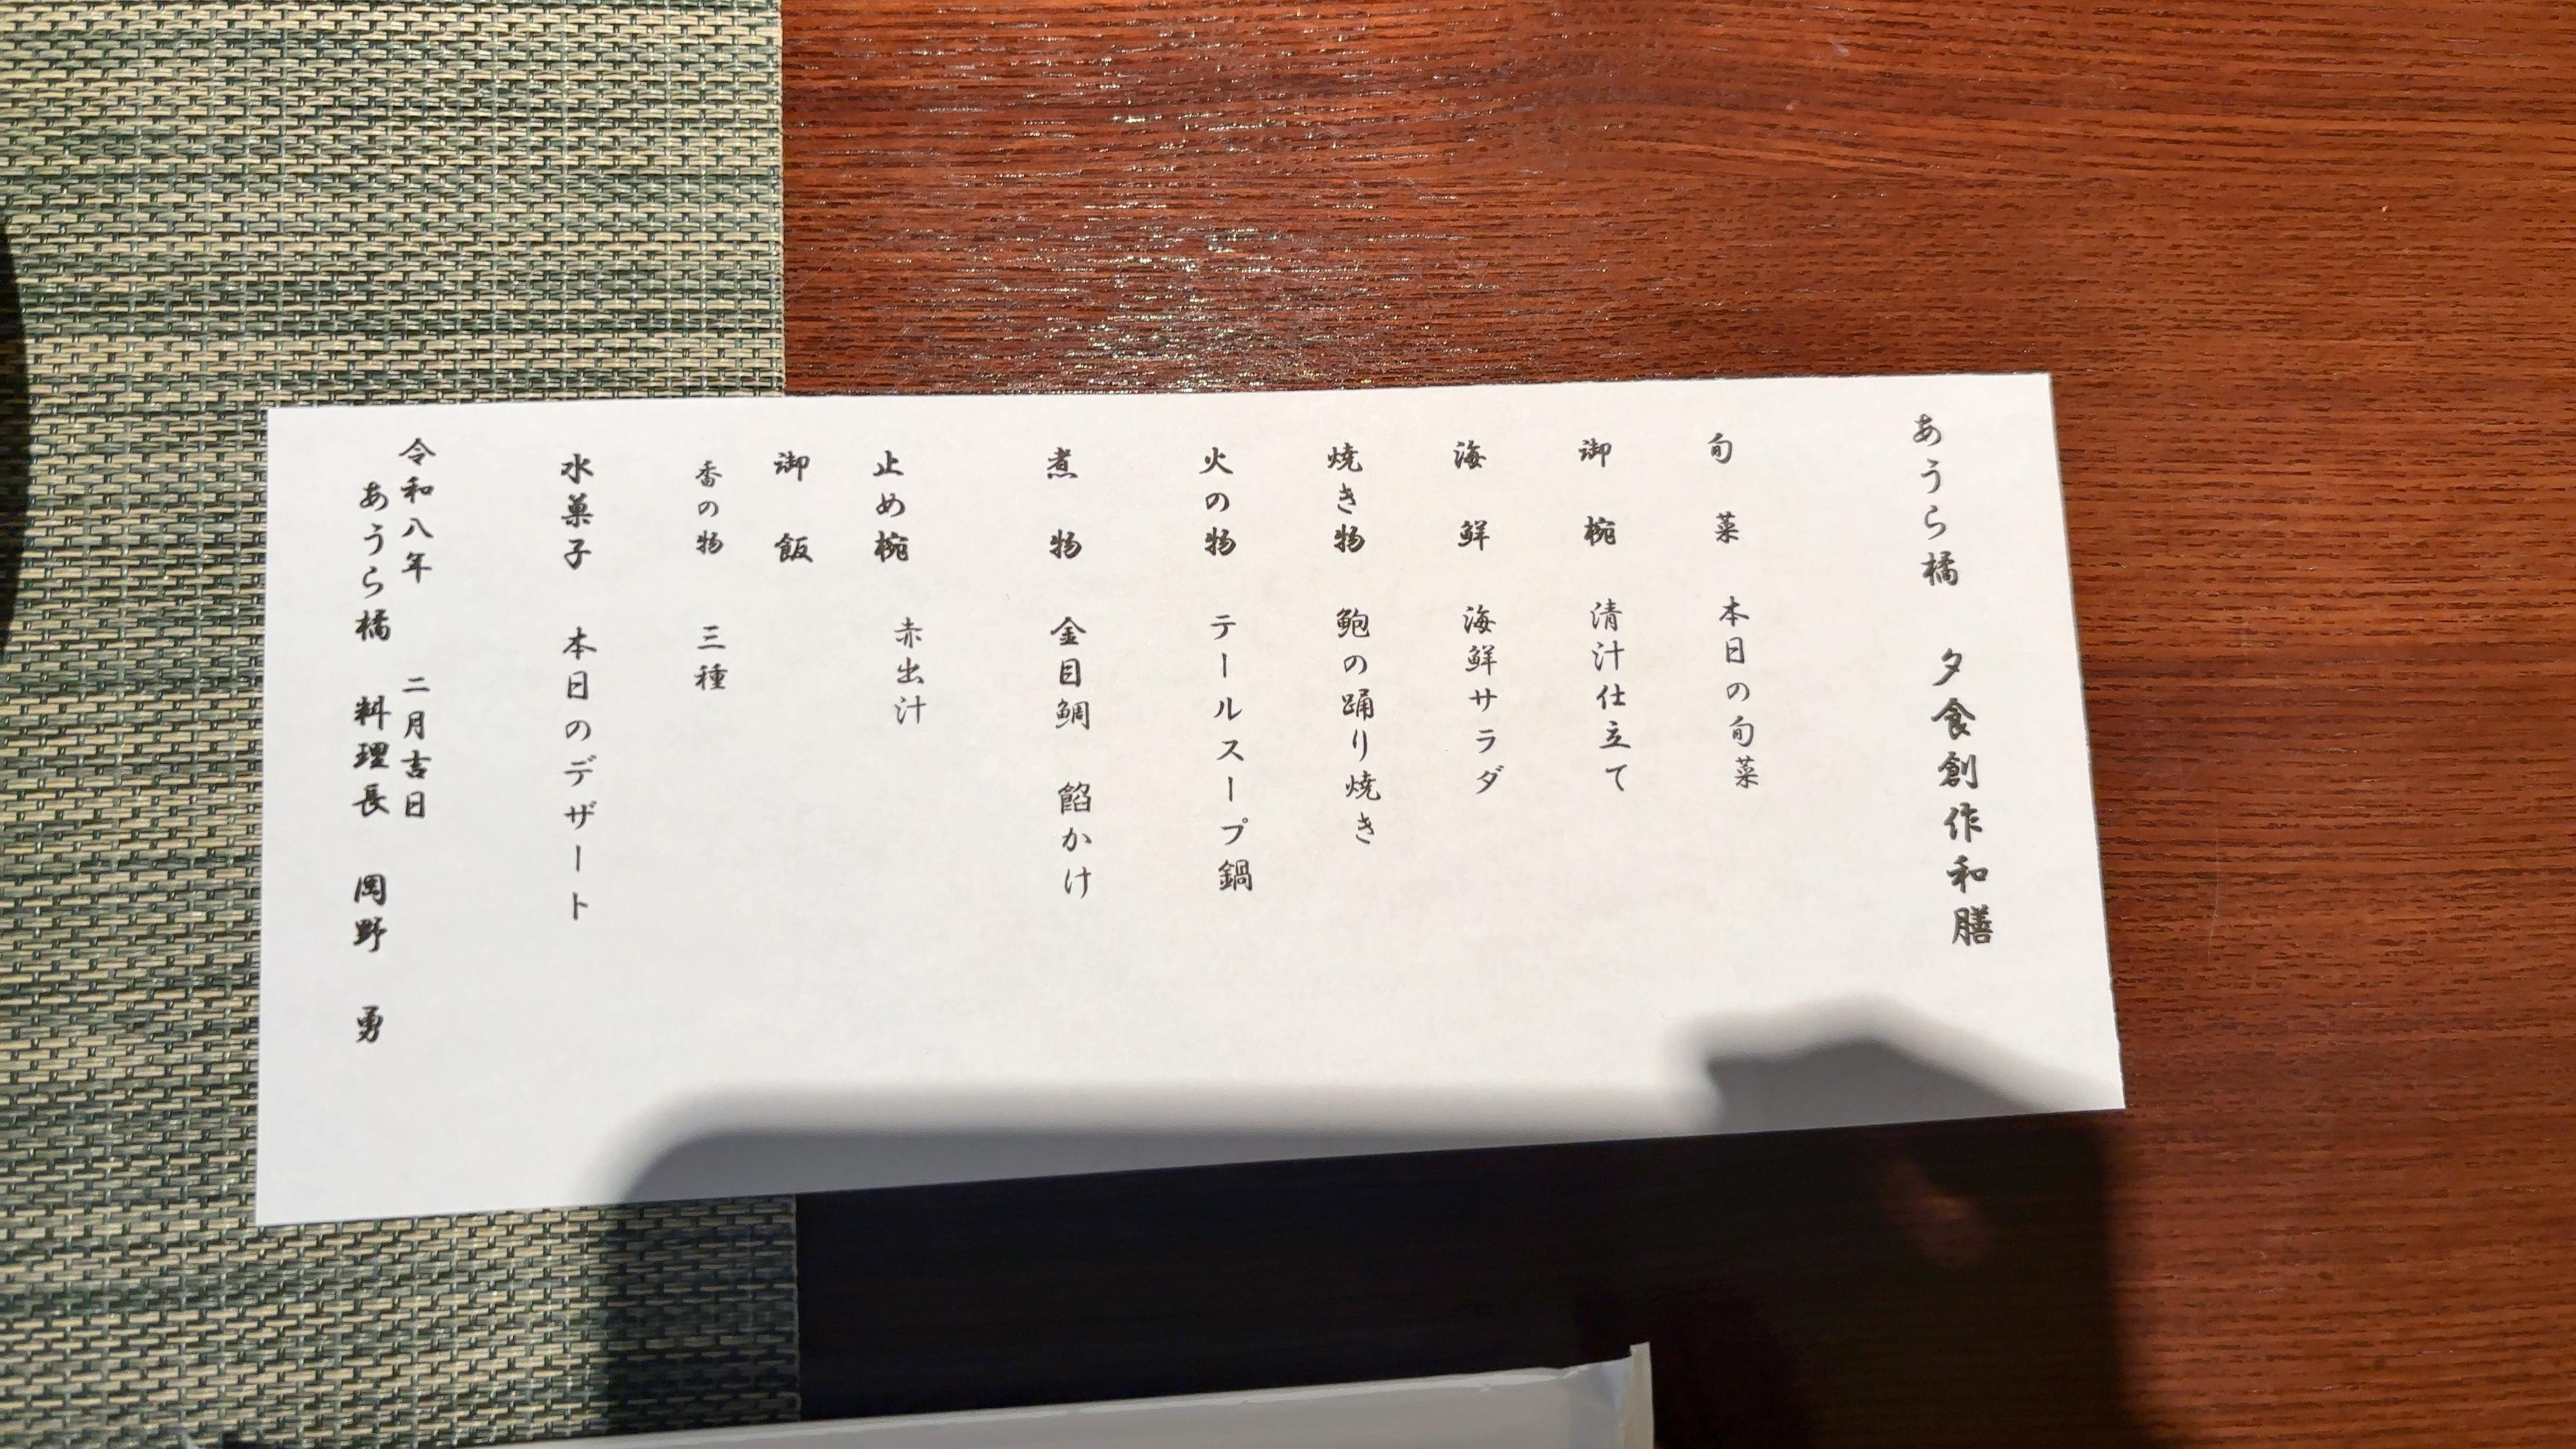 あうら橘　夕食創作和膳
旬菜　本日の旬菜
御椀　清汁仕立て
海鮮　海鮮サラダ
焼き物　鮑の踊り焼き
火の物　テールスープ鍋
煮物　金目鯛　餡かけ
止め椀　赤出汁
御飯
香の物　三種
水菓子　本日のデザート
令和八年　二月吉日
あうら橘　料理長　岡野　勇